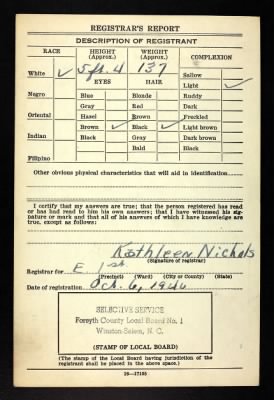 REGISTRAR'S REPORT
DESCRIPTION OF REGISTRANT
RACE HEIGHT (Approx.) WEIGHT (Approx.) COMPLEXION
White ✓ 5 ft. 4 137 Sallow
EYES HAIR Light ✓
Negro Blue Blonde Ruddy
Gray Red Dark
Oriental Hazel Brown Freckled
Brown ✓ Black ✓ Light brown
Indian Black Gray Dark brown
Bald Black
Filipino
Other obvious physical characteristics that will aid in identification
I certify that my answers are true; that the person registered has read
or has had read to him his own answers; that I have witnessed his sig-
nature or mark and that all of his answers of which I have knowledge are true,
except as follows:
Kathleen Nichols
(Signature of registrar)
Registrar for E. 1st
(Precinct) (Ward) (City or County) (State)
Date of registration Oct. 6, 1946
SELECTIVE SERVICE
Forsyth County Local Board No. 1
Winston-Salem, N. C.
(STAMP OF LOCAL BOARD)
(The stamp of the Local Board having jurisdiction of the
registrant shall be placed in the above space.)